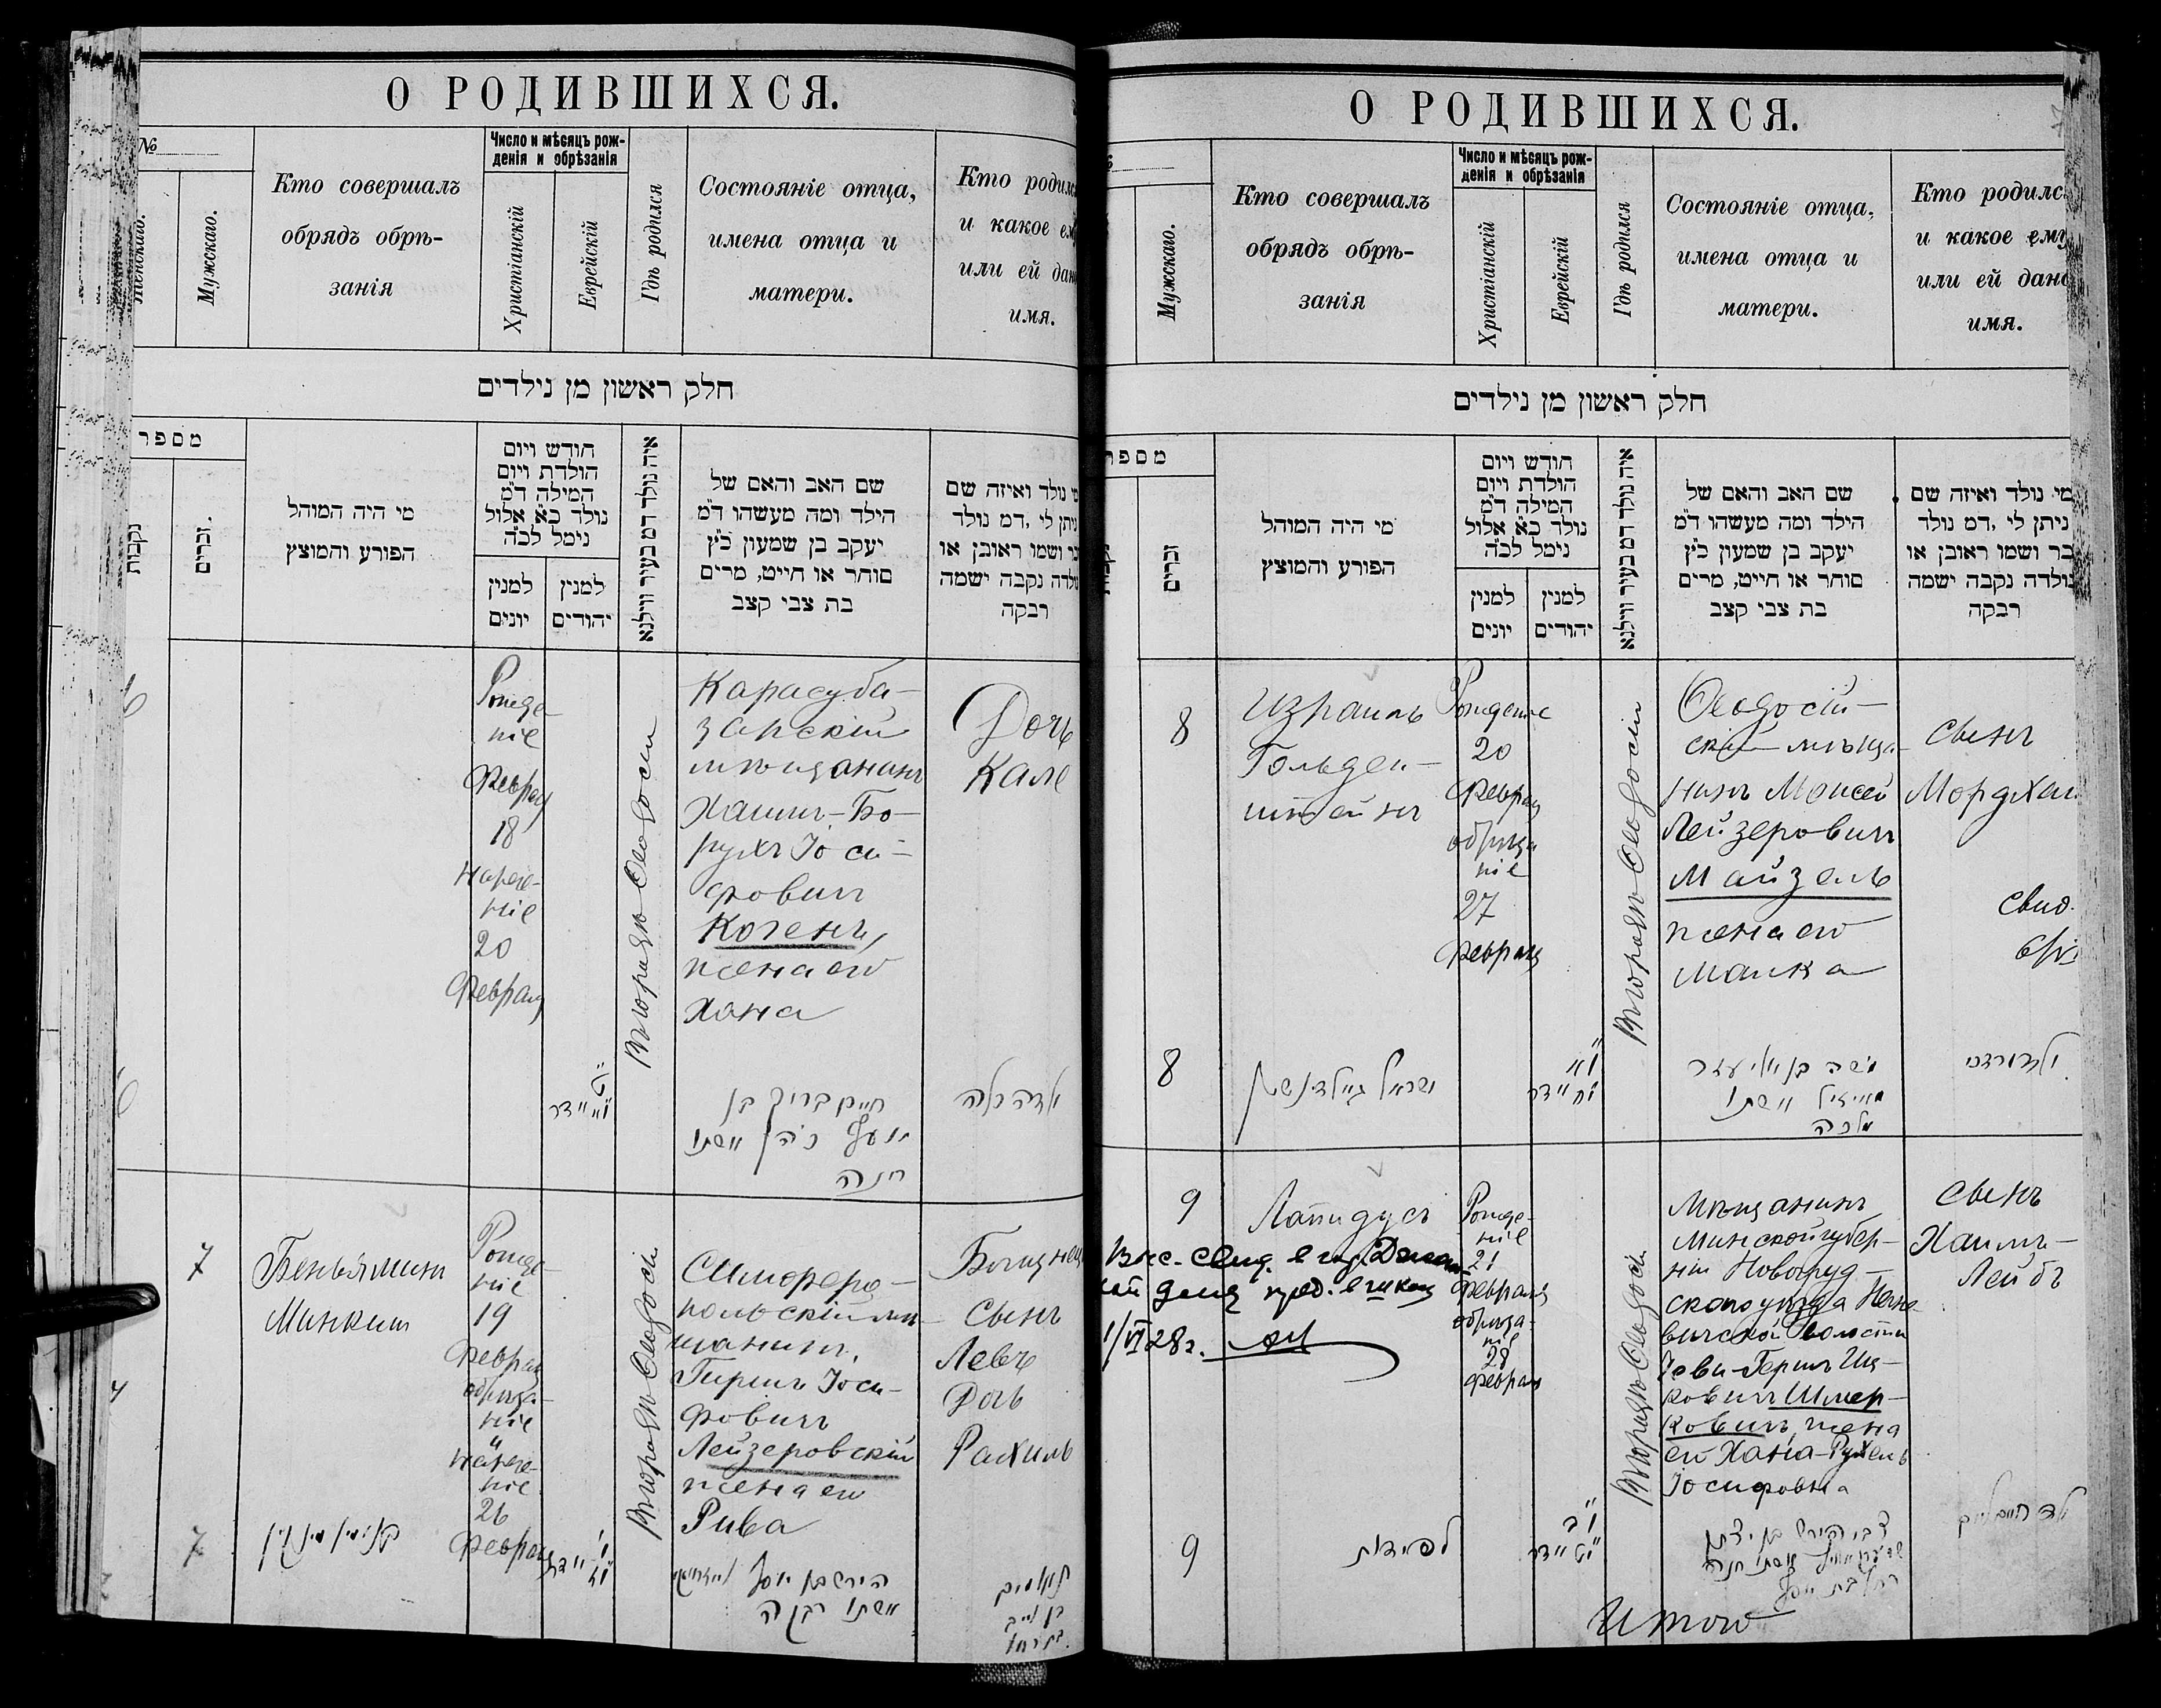 О РОДИВШИХСЯ.
№
Мужскаго.
Кто совершалъ
обрядъ обрѣ-
занія
Число и мѣсяцъ рож-
денія и обрѣзанія
Христіанскій
Еврейскій
Гдѣ родился
Состояніе отца,
имена отца и
матери.
Кто родилс
и какое ем
или ей дан
имя.
חלק ראשון מן נילדים
מספר
זכרים
מי היה המוהל
הפורע והמוצץ
חודש ויום
הולדת ויום
המילה ד״מ
נולד כ״א אלול
נימל לכ״ה
למנין
יונים
למנין
יהודים
איה נולד דמ בעיר ווילנא
שם האב והאם של
הילד ומה מעשהו ד״מ
יעקב בן שמעון כ״ץ
סוחר או חייט, מרים
בת צבי קצב
נולד ואיזה שם
ניתן לי, דמ נולד
ושמו ראובן או
נקבה ישמה
רבקה
Рожде-
ніе
Феврал
18
нарече-
ніе
20
Февраля
въ городѣ Ѳеодосіи
Карасуба-
зарскій
мѣщанинъ
Хаимъ-Бо-
рухъ Іоси-
фовичъ
Когенъ,
жена его
Хана
Дочь
Кале
חיים ברוך בן
יוסף כהן אשתו
חנה
ילדה כלה
7
Беньяминъ
Минкинъ
Рожде-
ніе
19
Феврал
обрѣза-
ніе
и
нарече-
ніе
26
Февраля
въ городѣ Ѳеодосіи
Симферо-
польскій мѣ-
щанинъ
Гиршъ Іоси-
фовичъ
Лейзеровскій
жена его
Рива
Близнец
Сынъ
Левъ
Дочь
Рахиль
7
בנימין מינקין
הירש בן יוסף
אשתו רבקה
תאומים
О РОДИВШИХСЯ.
Мужскаго.
Кто совершалъ
обрядъ обрѣ-
занія
Число и мѣсяцъ рож-
денія и обрѣзанія
Христіанскій
Еврейскій
Гдѣ родился
Состояніе отца,
имена отца и
матери.
Кто родилс
и какое ему
или ей дано
имя.
חלק ראשון מן נילדים
מספר
זכרים
מי היה המוהל
הפורע והמוצץ
חודש ויום
הולדת ויום
המילה ד״מ
נולד כ״א אלול
נימל לכ״ה
למנין
יונים
למנין
יהודים
איה נולד דמ בעיר ווילנא
שם האב והאם של
הילד ומה מעשהו ד״מ
יעקב בן שמעון כ״ץ
סוחר או חייט, מרים
בת צבי קצב
מי נולד ואיזה שם
ניתן לי, דמ נולד
בר ושמו ראובן או
נולדה נקבה ישמה
רבקה
8
Израиль
Гольден-
штейнъ
Рожденіе
20
Феврал
обрѣза
ніе
27
Февраля
въ городѣ Ѳеодосіи
Ѳеодосій-
скій мѣща-
нинъ Моисей
Лейзеровичъ
Майзель
жена его
Малка
Сынъ
Мордхай
8
ישראל גאלדנשטיין
משה בן אליעזר
מייזיל אשתו
מלכה
9
Лапидусъ
Рожде-
ніе
21
Февраля
обрѣза-
ніе
28
Февраля
1/VI 28 г.
въ городѣ Ѳеодосіи
Мѣщанинъ
Минской губер-
ніи Новогруд-
скаго уѣзда
волости
Гершъ Иц-
ковичъ Шмер-
ковичъ, жена
его Хана-Рухель
Іосифовна
Сынъ
Хаимъ-
Лейбъ
9
לפידות
צבי הירש בן יצחק
אשתו חנה
רחל בת יוסף
ילד חיים לייב
Итого